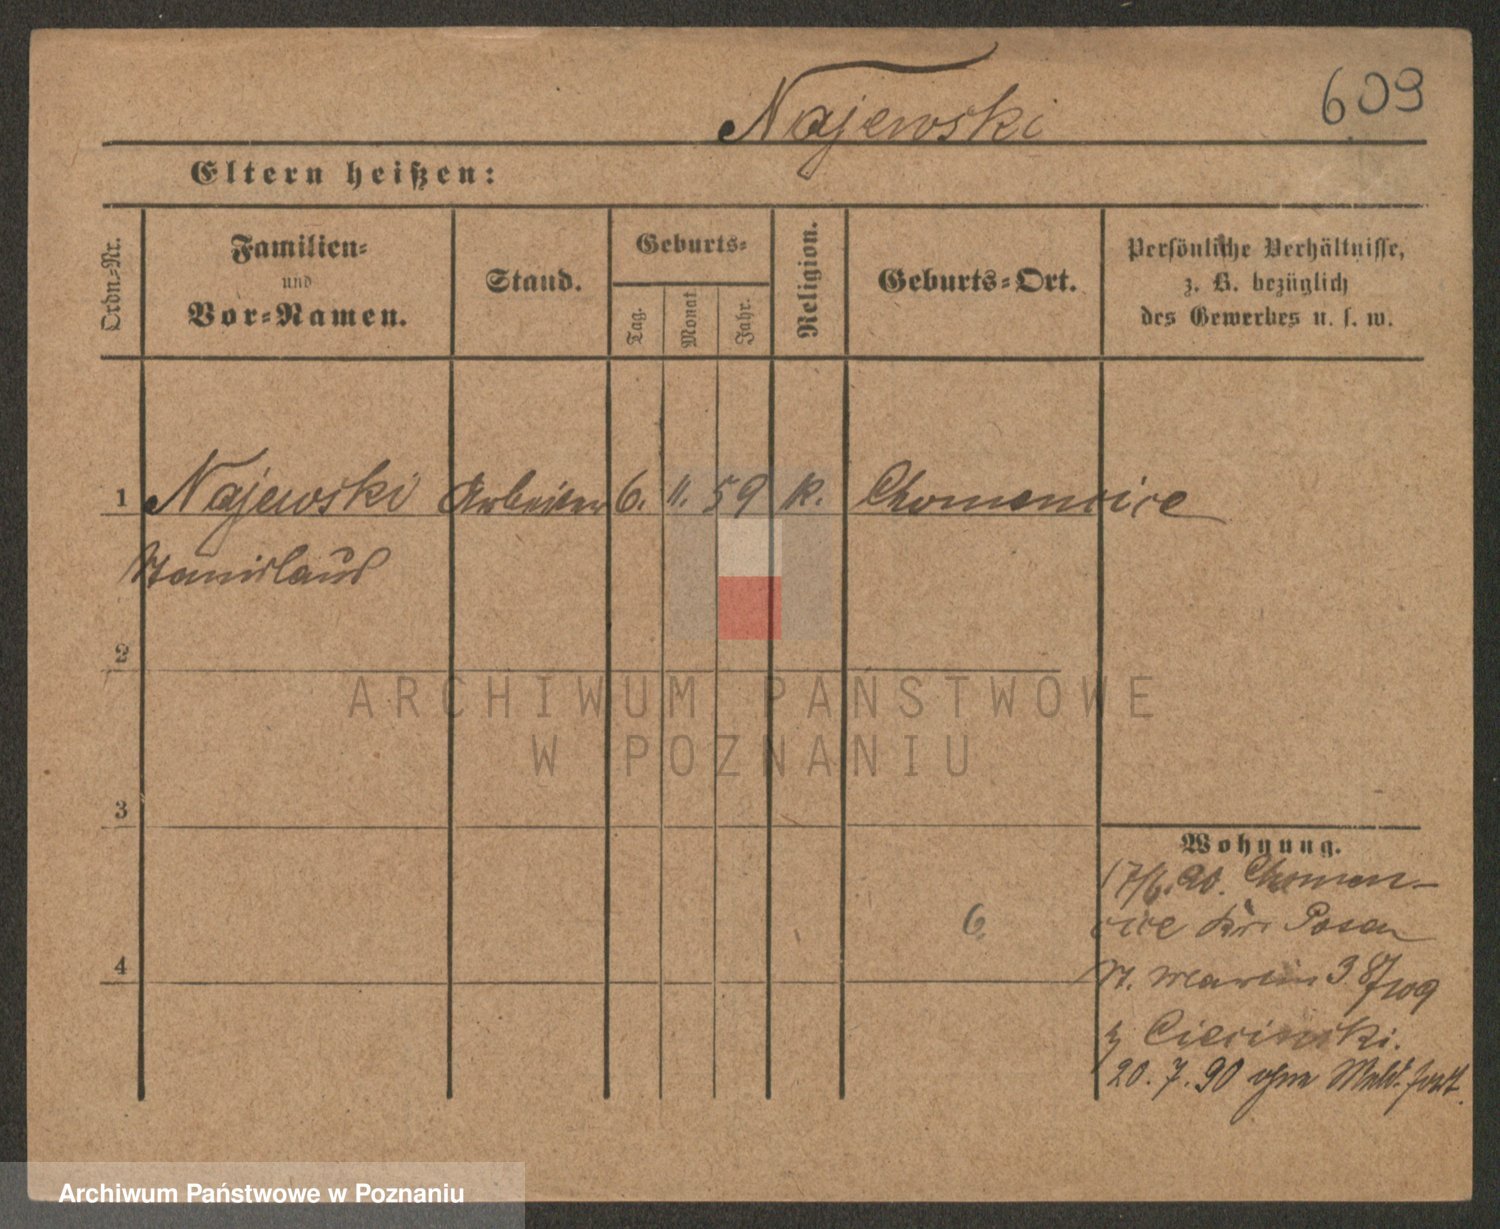 Najewski
609
Eltern heißen:
Ordn.=Nr.
Familien=
und
Vor=Namen.
Stand.
Geburts=
Tag.
Monat
Jahr.
Religion.
Geburts=Ort.
Persönliche Verhältnisse,
z. B. bezüglich
des Gewerbes u. s. w.
1 Najewski Arbeiter 6. 11. 59 k. Chomencice
Stanislaus
2
3
4
6.
Wohnung.
17/6. 90. Chomen-
cice Krs Posen
St. Martin 38/109
b Ciesinski.
20. 7. 90 ohne Meld. fort.
ARCHIWUM PAŃSTWOWE
W POZNANIU
Archiwum Państwowe w Poznaniu